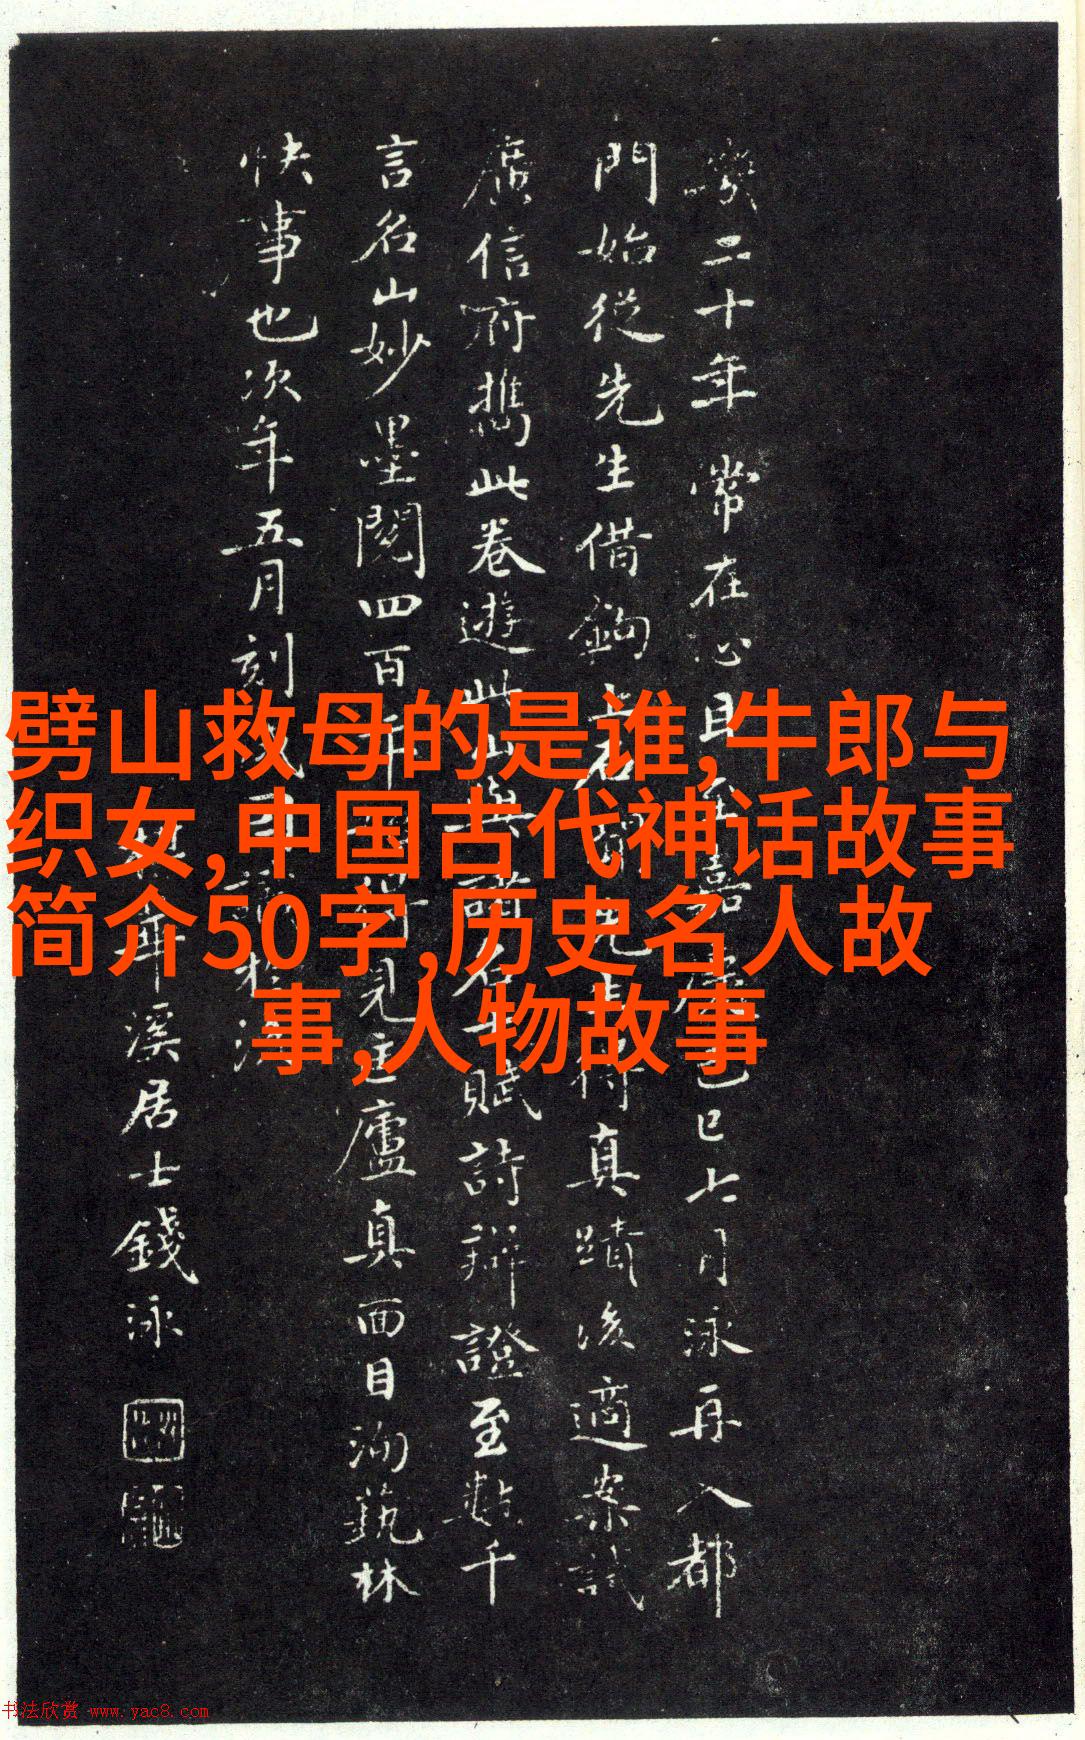 劈山救母的是谁,牛郎与
织女,中国古代神话故事
简介50字,历史名人故
事,人物故事
二十年常在心目 嘉慶己巳六月泳再入都
門始從先生借鉤 得真蹟後適案試
廣信府攜此卷遊此山與 賦詩辯證至數千
言名山妙墨閱四百 年 見匡廬真面目洵藝林
快事也次年五月刻
溪居士錢泳
书法欣赏 www.yac8.com